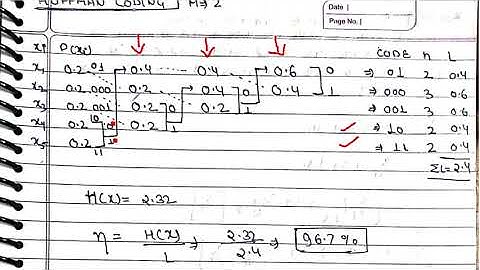 HUFFMAN CODING M=2
Date
Page No.
xi P(xi) CODE n L
x1 0.2 01 0.4 0.4 0.6 0 ⇒ 01 2 0.4
x2 0.2 000 0.2 0.4 0 0.4 1 ⇒ 000 3 0.6
x3 0.2 001 0.2 0 0.2 1 ⇒ 001 3 0.6
x4 0.2 10 0 0.2 1 ✓ ⇒ 10 2 0.4
x5 0.2 11 1 ✓ ⇒ 11 2 0.4
ΣL=2.4
H(X)= 2.32
η = H(X)/L ⇒ 2.32/2.4 ⇒ 96.7%